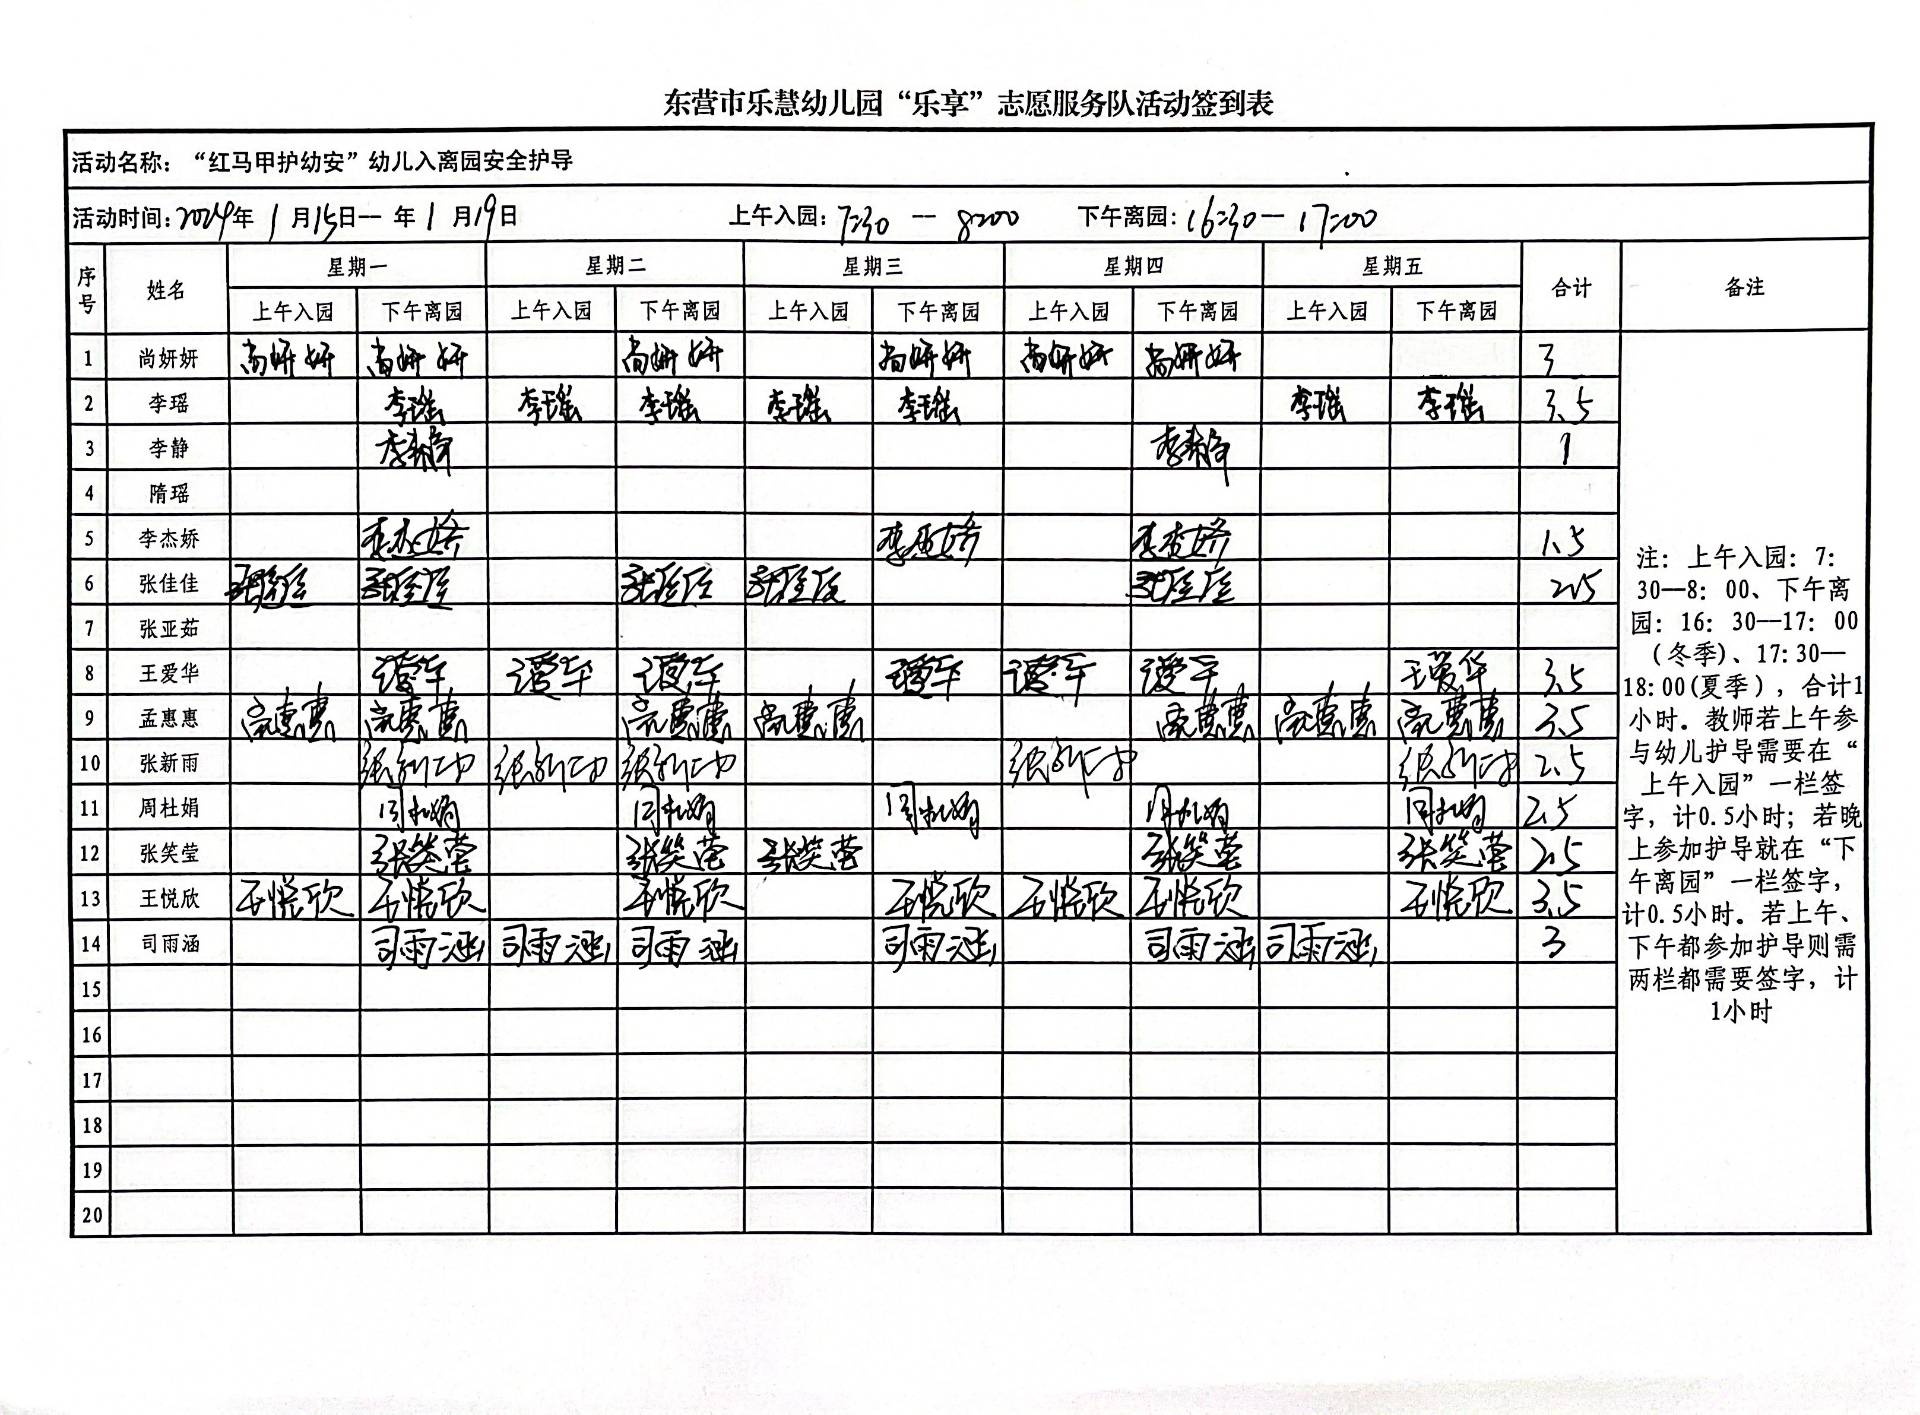 东营市乐慧幼儿园“乐享”志愿服务队活动签到表
活动名称：“红马甲护幼安”幼儿入离园安全护导
活动时间：2024年 1 月 15日-- 年 1 月 19日 上午入园：7:30 -- 8:00 下午离园：16:30-- 17:00
序号 姓名 星期一 星期二 星期三 星期四 星期五 合计 备注
上午入园 下午离园 上午入园 下午离园 上午入园 下午离园 上午入园 下午离园 上午入园 下午离园
1 尚妍妍 尚妍妍 尚妍妍 尚妍妍 尚妍妍 尚妍妍 尚妍妍 3
2 李瑶 李瑶 李瑶 李瑶 李瑶 李瑶 李瑶 李瑶 3.5
3 李静 李静 李静 1
4 隋瑶
5 李杰娇 李杰娇 李杰娇 李杰娇 1.5
6 张佳佳 张佳佳 张佳佳 张佳佳 张佳佳 张佳佳 2.5
7 张亚茹
8 王爱华 王爱华 王爱华 王爱华 王爱华 王爱华 王爱华 王爱华 3.5
9 孟惠惠 孟惠惠 孟惠惠 孟惠惠 孟惠惠 孟惠惠 孟惠惠 孟惠惠 3.5
10 张新雨 张新雨 张新雨 张新雨 张新雨 张新雨 2.5
11 周杜娟 周杜娟 周杜娟 周杜娟 周杜娟 周杜娟 2.5
12 张笑莹 张笑莹 张笑莹 张笑莹 张笑莹 张笑莹 2.5
13 王悦欣 王悦欣 王悦欣 王悦欣 王悦欣 王悦欣 王悦欣 王悦欣 3.5
14 司雨涵 司雨涵 司雨涵 司雨涵 司雨涵 司雨涵 司雨涵 3
15
16
17
18
19
20
注：上午入园：7:
30—8：00、下午离
园：16：30—17：00
（冬季）、17:30—
18:00(夏季），合计1
小时。教师若上午参
与幼儿护导需要在“
上午入园”一栏签
字，计0.5小时；若晚
上参加护导就在“下
午离园”一栏签字，
计0.5小时。若上午、
下午都参加护导则需
两栏都需要签字，计
1小时